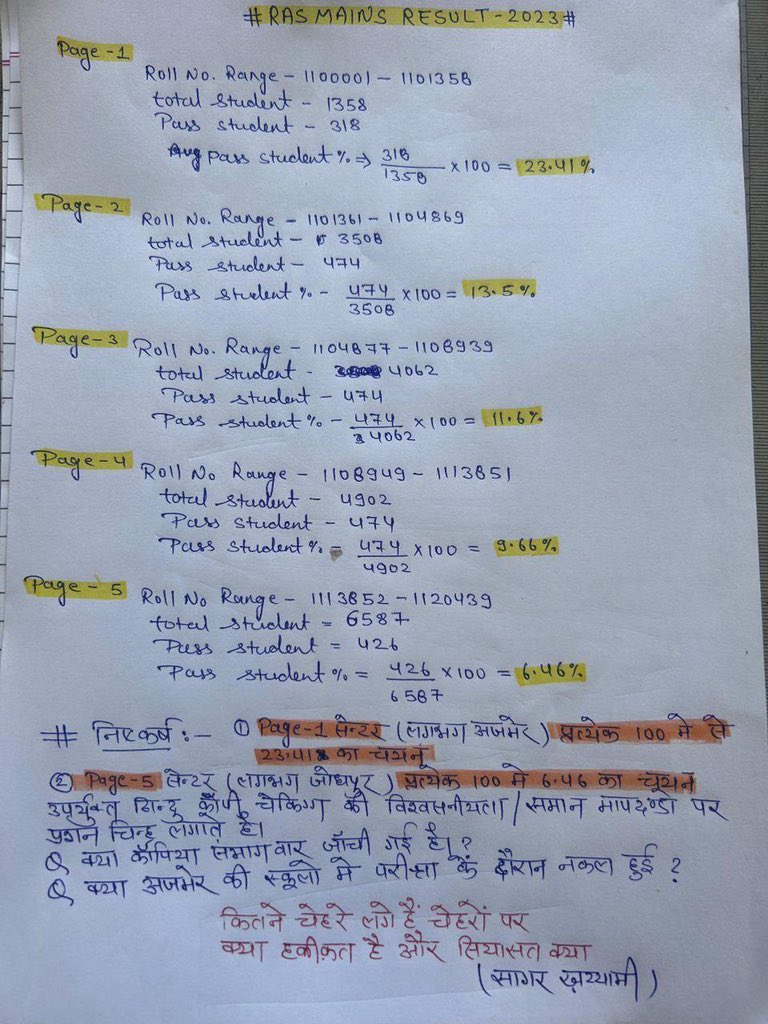 # RAS MAINS RESULT - 2023 #
Page - 1
Roll No. Range - 1100001 - 1101358
total student - 1358
Pass student - 318
Avg pass student % ⇒ 318/1358 × 100 = 23.41 %
Page - 2
Roll No. Range - 1101361 - 1104869
total student - 3508
Pass student - 474
Pass student % - 474/3508 × 100 = 13.5 %
Page - 3
Roll No. Range - 1104877 - 1108939
total student - 4062
Pass student - 474
Pass student % - 474/4062 × 100 = 11.6 %
Page - 4
Roll No Range - 1108949 - 1113851
total student - 4902
Pass student - 474
Pass student % = 474/4902 × 100 = 9.66 %
Page - 5
Roll No Range - 1113852 - 1120439
total student = 6587
Pass student = 426
Pass student % = 426/6587 × 100 = 6.46 %
# निष्कर्ष :- ① Page-1 सेन्टर (लगभग अजमेर) प्रत्येक 100 मे से
23.41 का चयन
② Page-5 सेन्टर (लगभग जोधपुर) प्रत्येक 100 मे 6.46 का चयन
उपर्युक्त बिन्दु कॉपी चेकिंग की विश्वसनीयता / समान मापदण्डो पर
प्रशन चिन्ह लगाते है।
Q क्या कॉपिया संभाग वार जाँची गई है।?
Q क्या अजमेर की स्कूलो मे परीक्षा के दौरान नकल हुई ?
कितने चेहरे लगे हैं चेहरों पर
क्या हकीक़त है और सियासत क्या
(सागर ख़य्यामी)